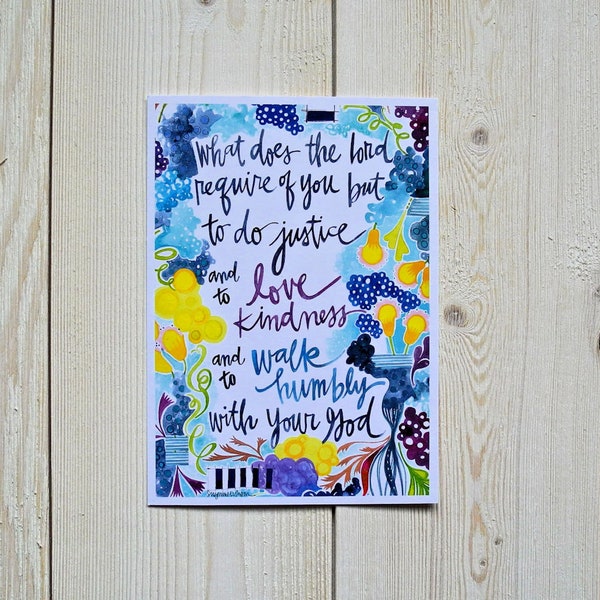 what does the lord
require of you but
to do justice
and to love
kindness
and to walk
humbly
with your God